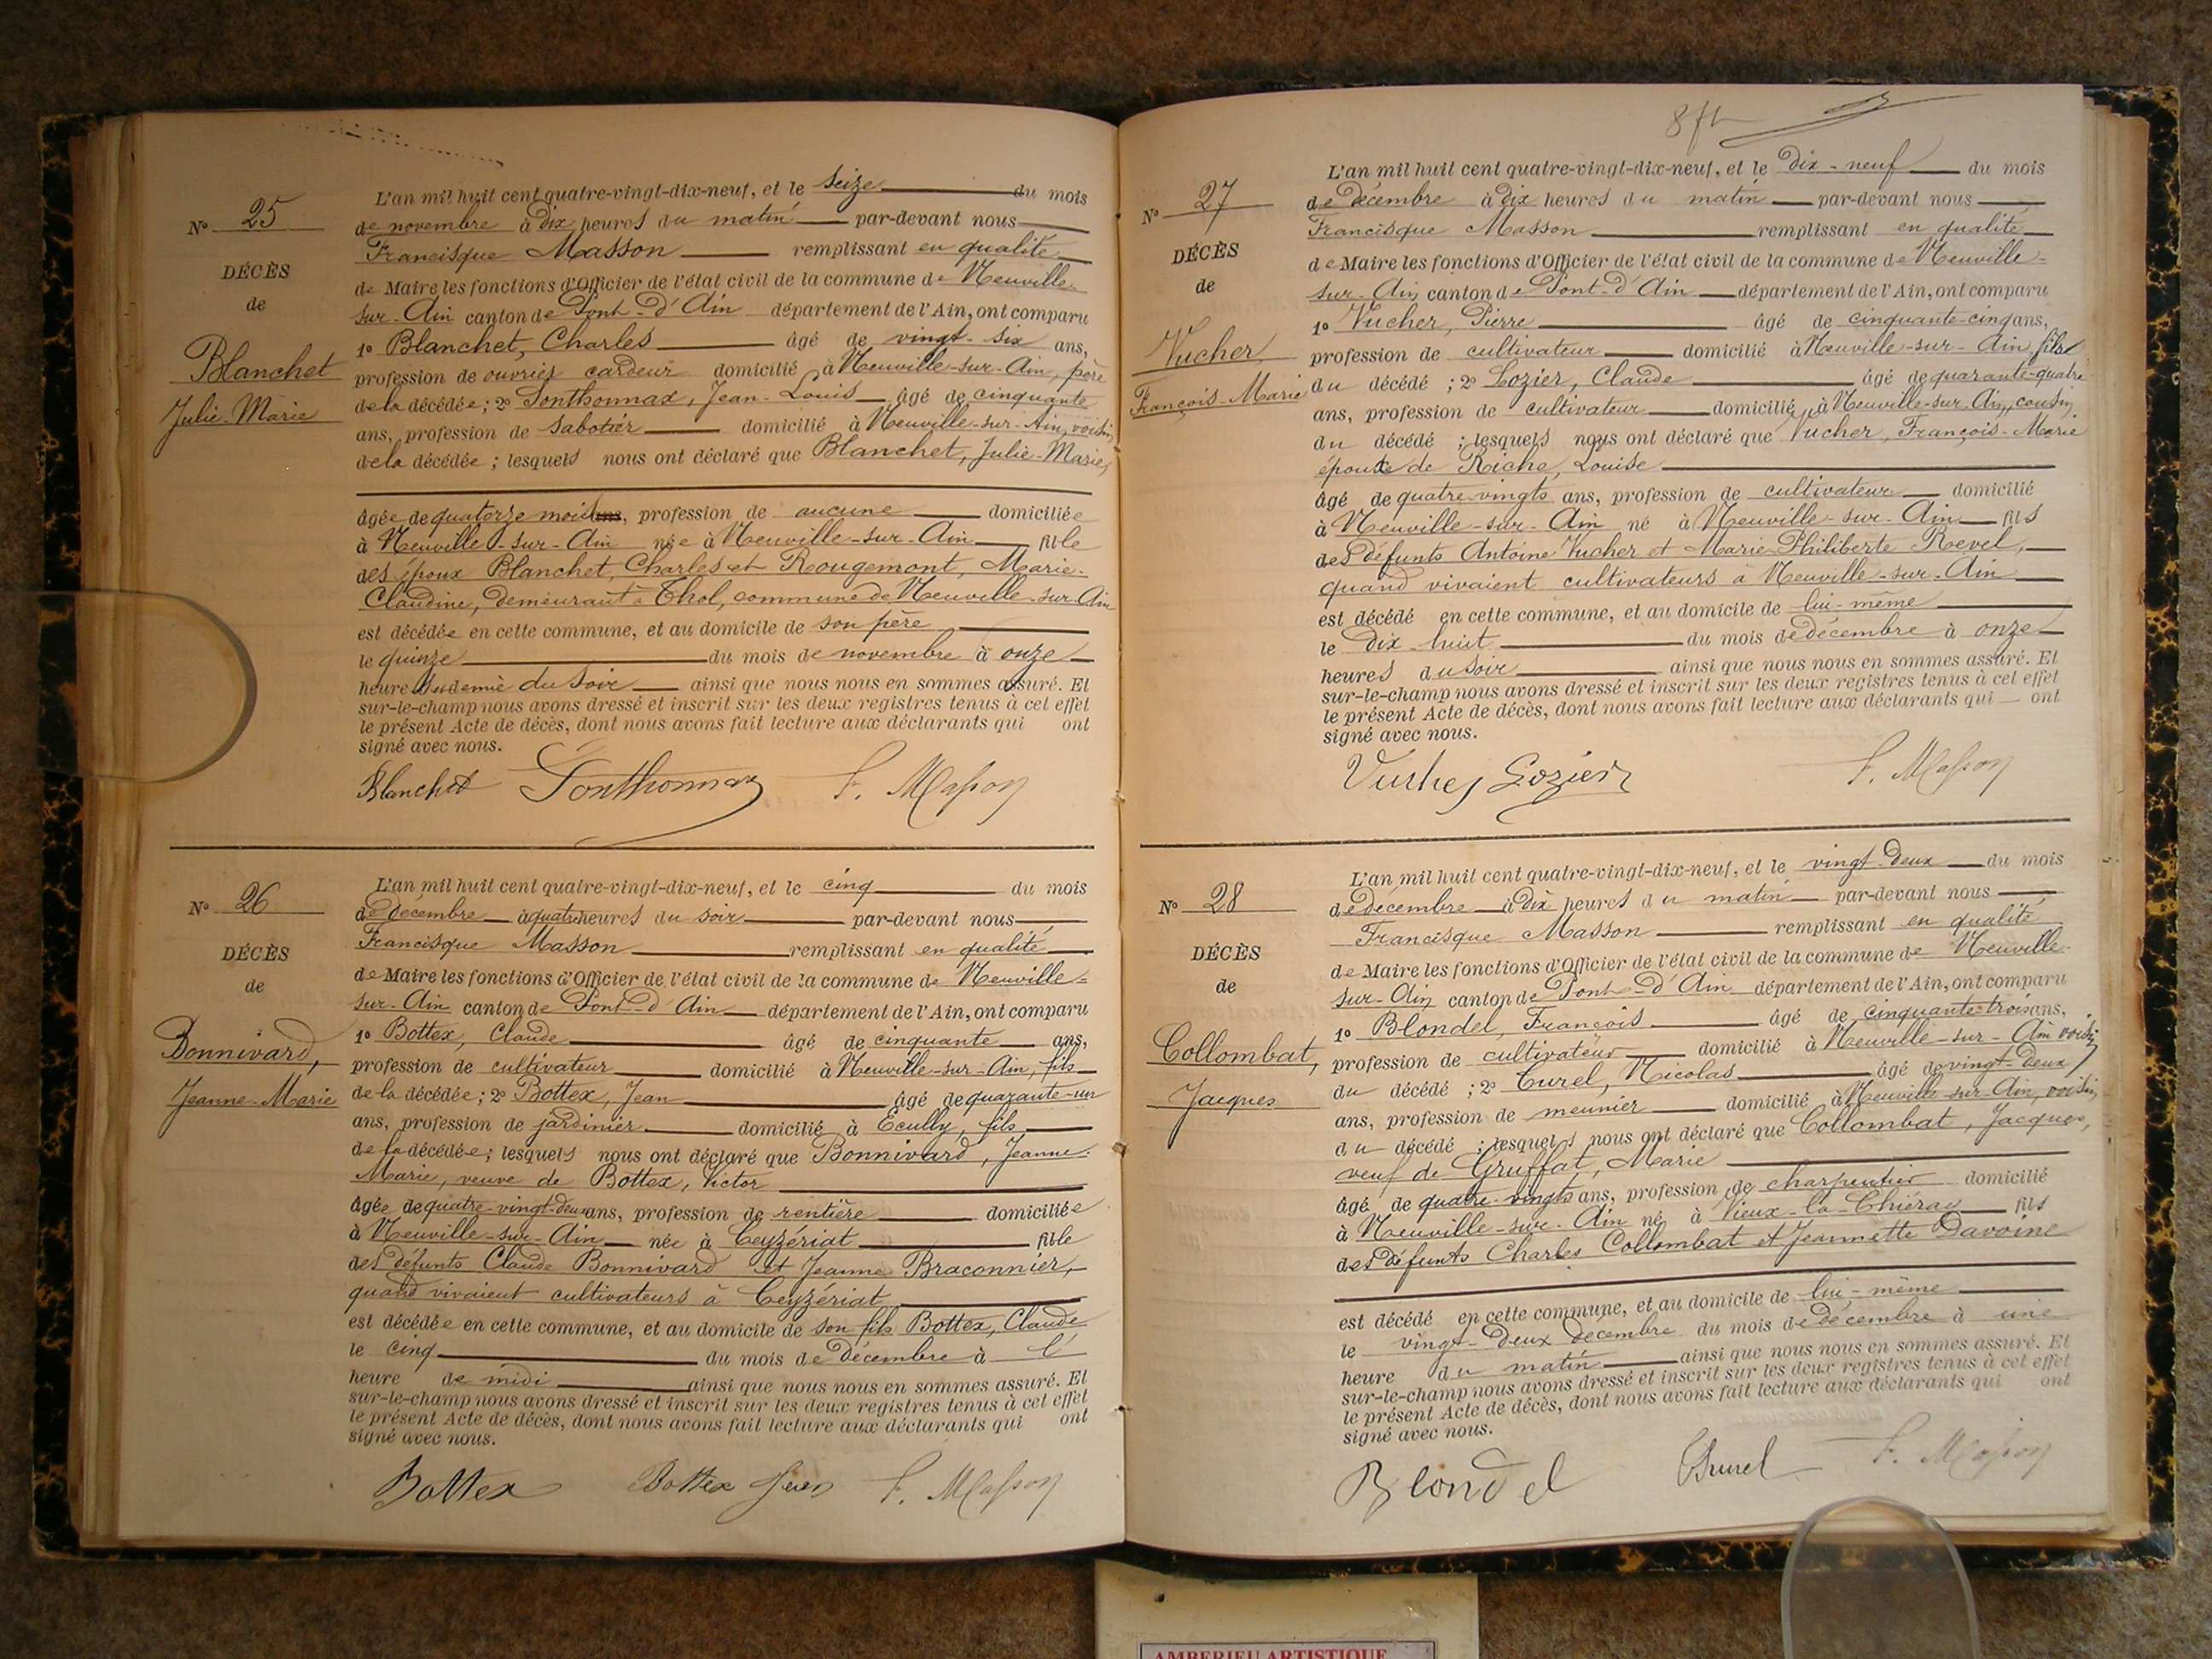 L'an mil huit cent quatre-vingt-dix-neuf, et le seize du mois
N° 25
de novembre à dix heures du matin par-devant nous
Francisque Masson remplissant en qualité
DÉCÈS
de Maire les fonctions d'Officier de l'état civil de la commune de Neuville-
de
sur-Ain canton de Pont-d'Ain département de l'Ain, ont comparu
1° Blanchet, Charles âgé de vingt-six ans,
Blanchet
profession de ouvrier cardeur domicilié à Neuville-sur-Ain, père
de la décédée; 2° Ponthonnax, Jean-Louis âgé de cinquante
Julie-Marie
ans, profession de sabotier domicilié à Neuville-sur-Ain, voisin
de la décédée; lesquels nous ont déclaré que Blanchet, Julie-Marie,
âgée de quatorze mois, profession de aucune domiciliée
à Neuville-sur-Ain née à Neuville-sur-Ain fille
des époux Blanchet, Charles et Rougemont, Marie-
Claudine, demeurant à Thol, commune de Neuville-sur-Ain
est décédée en cette commune, et au domicile de son père
le quinze du mois de novembre à onze
heures et demie du soir ainsi que nous nous en sommes assuré. Et
sur-le-champ nous avons dressé et inscrit sur les deux registres tenus à cet effet
le présent Acte de décès, dont nous avons fait lecture aux déclarants qui ont
signé avec nous.
Blanchet Ponthonnax F. Masson
L'an mil huit cent quatre-vingt-dix-neuf, et le cinq du mois
N° 26
de décembre à quatre heures du soir par-devant nous
Francisque Masson remplissant en qualité
DÉCÈS
de Maire les fonctions d'Officier de l'état civil de la commune de Neuville-
de
sur-Ain canton de Pont-d'Ain département de l'Ain, ont comparu
1° Bottex, Claude âgé de cinquante ans,
Bonnivard,
profession de cultivateur domicilié à Neuville-sur-Ain, fils
de la décédée; 2° Bottex, Jean âgé de quarante-un
Jeanne-Marie
ans, profession de jardinier domicilié à Ecully, fils
de la décédée; lesquels nous ont déclaré que Bonnivard, Jeanne-
Marie, veuve de Bottex, Victor
âgée de quatre-vingt-deux ans, profession de rentière domiciliée
à Neuville-sur-Ain née à Ceyzériat fille
des défunts Claude Bonnivard et Jeanne Braconnier,
quand vivaient cultivateurs à Ceyzériat
est décédée en cette commune, et au domicile de son fils Bottex, Claude
le cinq du mois de décembre à l'
heure de midi ainsi que nous nous en sommes assuré. Et
sur-le-champ nous avons dressé et inscrit sur les deux registres tenus à cet effet
le présent Acte de décès, dont nous avons fait lecture aux déclarants qui ont
signé avec nous.
Bottex Bottex Jean F. Masson
L'an mil huit cent quatre-vingt-dix-neuf, et le dix-neuf du mois
N° 27
de décembre à dix heures du matin par-devant nous
Francisque Masson remplissant en qualité
DÉCÈS
de Maire les fonctions d'Officier de l'état civil de la commune de Neuville-
de
sur-Ain canton de Pont-d'Ain département de l'Ain, ont comparu
1° Vucher, Pierre âgé de cinquante-cinq ans,
Vucher,
profession de cultivateur domicilié à Neuville-sur-Ain fils
François-Marie
du décédé; 2° Lozier, Claude âgé de quarante-quatre
ans, profession de cultivateur domicilié à Neuville-sur-Ain, cousin
du décédé; lesquels nous ont déclaré que Vucher, François-Marie
époux de Riche, Louise
âgé de quatre-vingts ans, profession de cultivateur domicilié
à Neuville-sur-Ain né à Neuville-sur-Ain fils
des défunts Antoine Vucher et Marie-Philiberte Revel,
quand vivaient cultivateurs à Neuville-sur-Ain
est décédé en cette commune, et au domicile de lui-même
le dix-huit du mois de décembre à onze
heures du soir ainsi que nous nous en sommes assuré. Et
sur-le-champ nous avons dressé et inscrit sur les deux registres tenus à cet effet
le présent Acte de décès, dont nous avons fait lecture aux déclarants qui ont
signé avec nous.
Vucher Lozier F. Masson
L'an mil huit cent quatre-vingt-dix-neuf, et le vingt-deux du mois
N° 28
de décembre à dix heures du matin par-devant nous
Francisque Masson remplissant en qualité
DÉCÈS
de Maire les fonctions d'Officier de l'état civil de la commune de Neuville-
de
sur-Ain canton de Pont-d'Ain département de l'Ain, ont comparu
1° Blondel, François âgé de cinquante-trois ans,
Collombat,
profession de cultivateur domicilié à Neuville-sur-Ain voisin
du décédé; 2° Curel, Nicolas âgé de vingt-deux
Jacques
ans, profession de meunier domicilié à Neuville-sur-Ain, voisin
du décédé; lesquels nous ont déclaré que Collombat, Jacques,
veuf de Gruffat, Marie
âgé de quatre-vingts ans, profession de charpentier domicilié
à Neuville-sur-Ain né à Vieux-la- fils
des défunts Charles Collombat et Jeannette Davoine
est décédé en cette commune, et au domicile de lui-même
le vingt-deux décembre du mois de décembre à une
heure du matin ainsi que nous nous en sommes assuré. Et
sur-le-champ nous avons dressé et inscrit sur les deux registres tenus à cet effet
le présent Acte de décès, dont nous avons fait lecture aux déclarants qui ont
signé avec nous.
Blondel F. Masson
AMBERIEU ARTISTIQUE